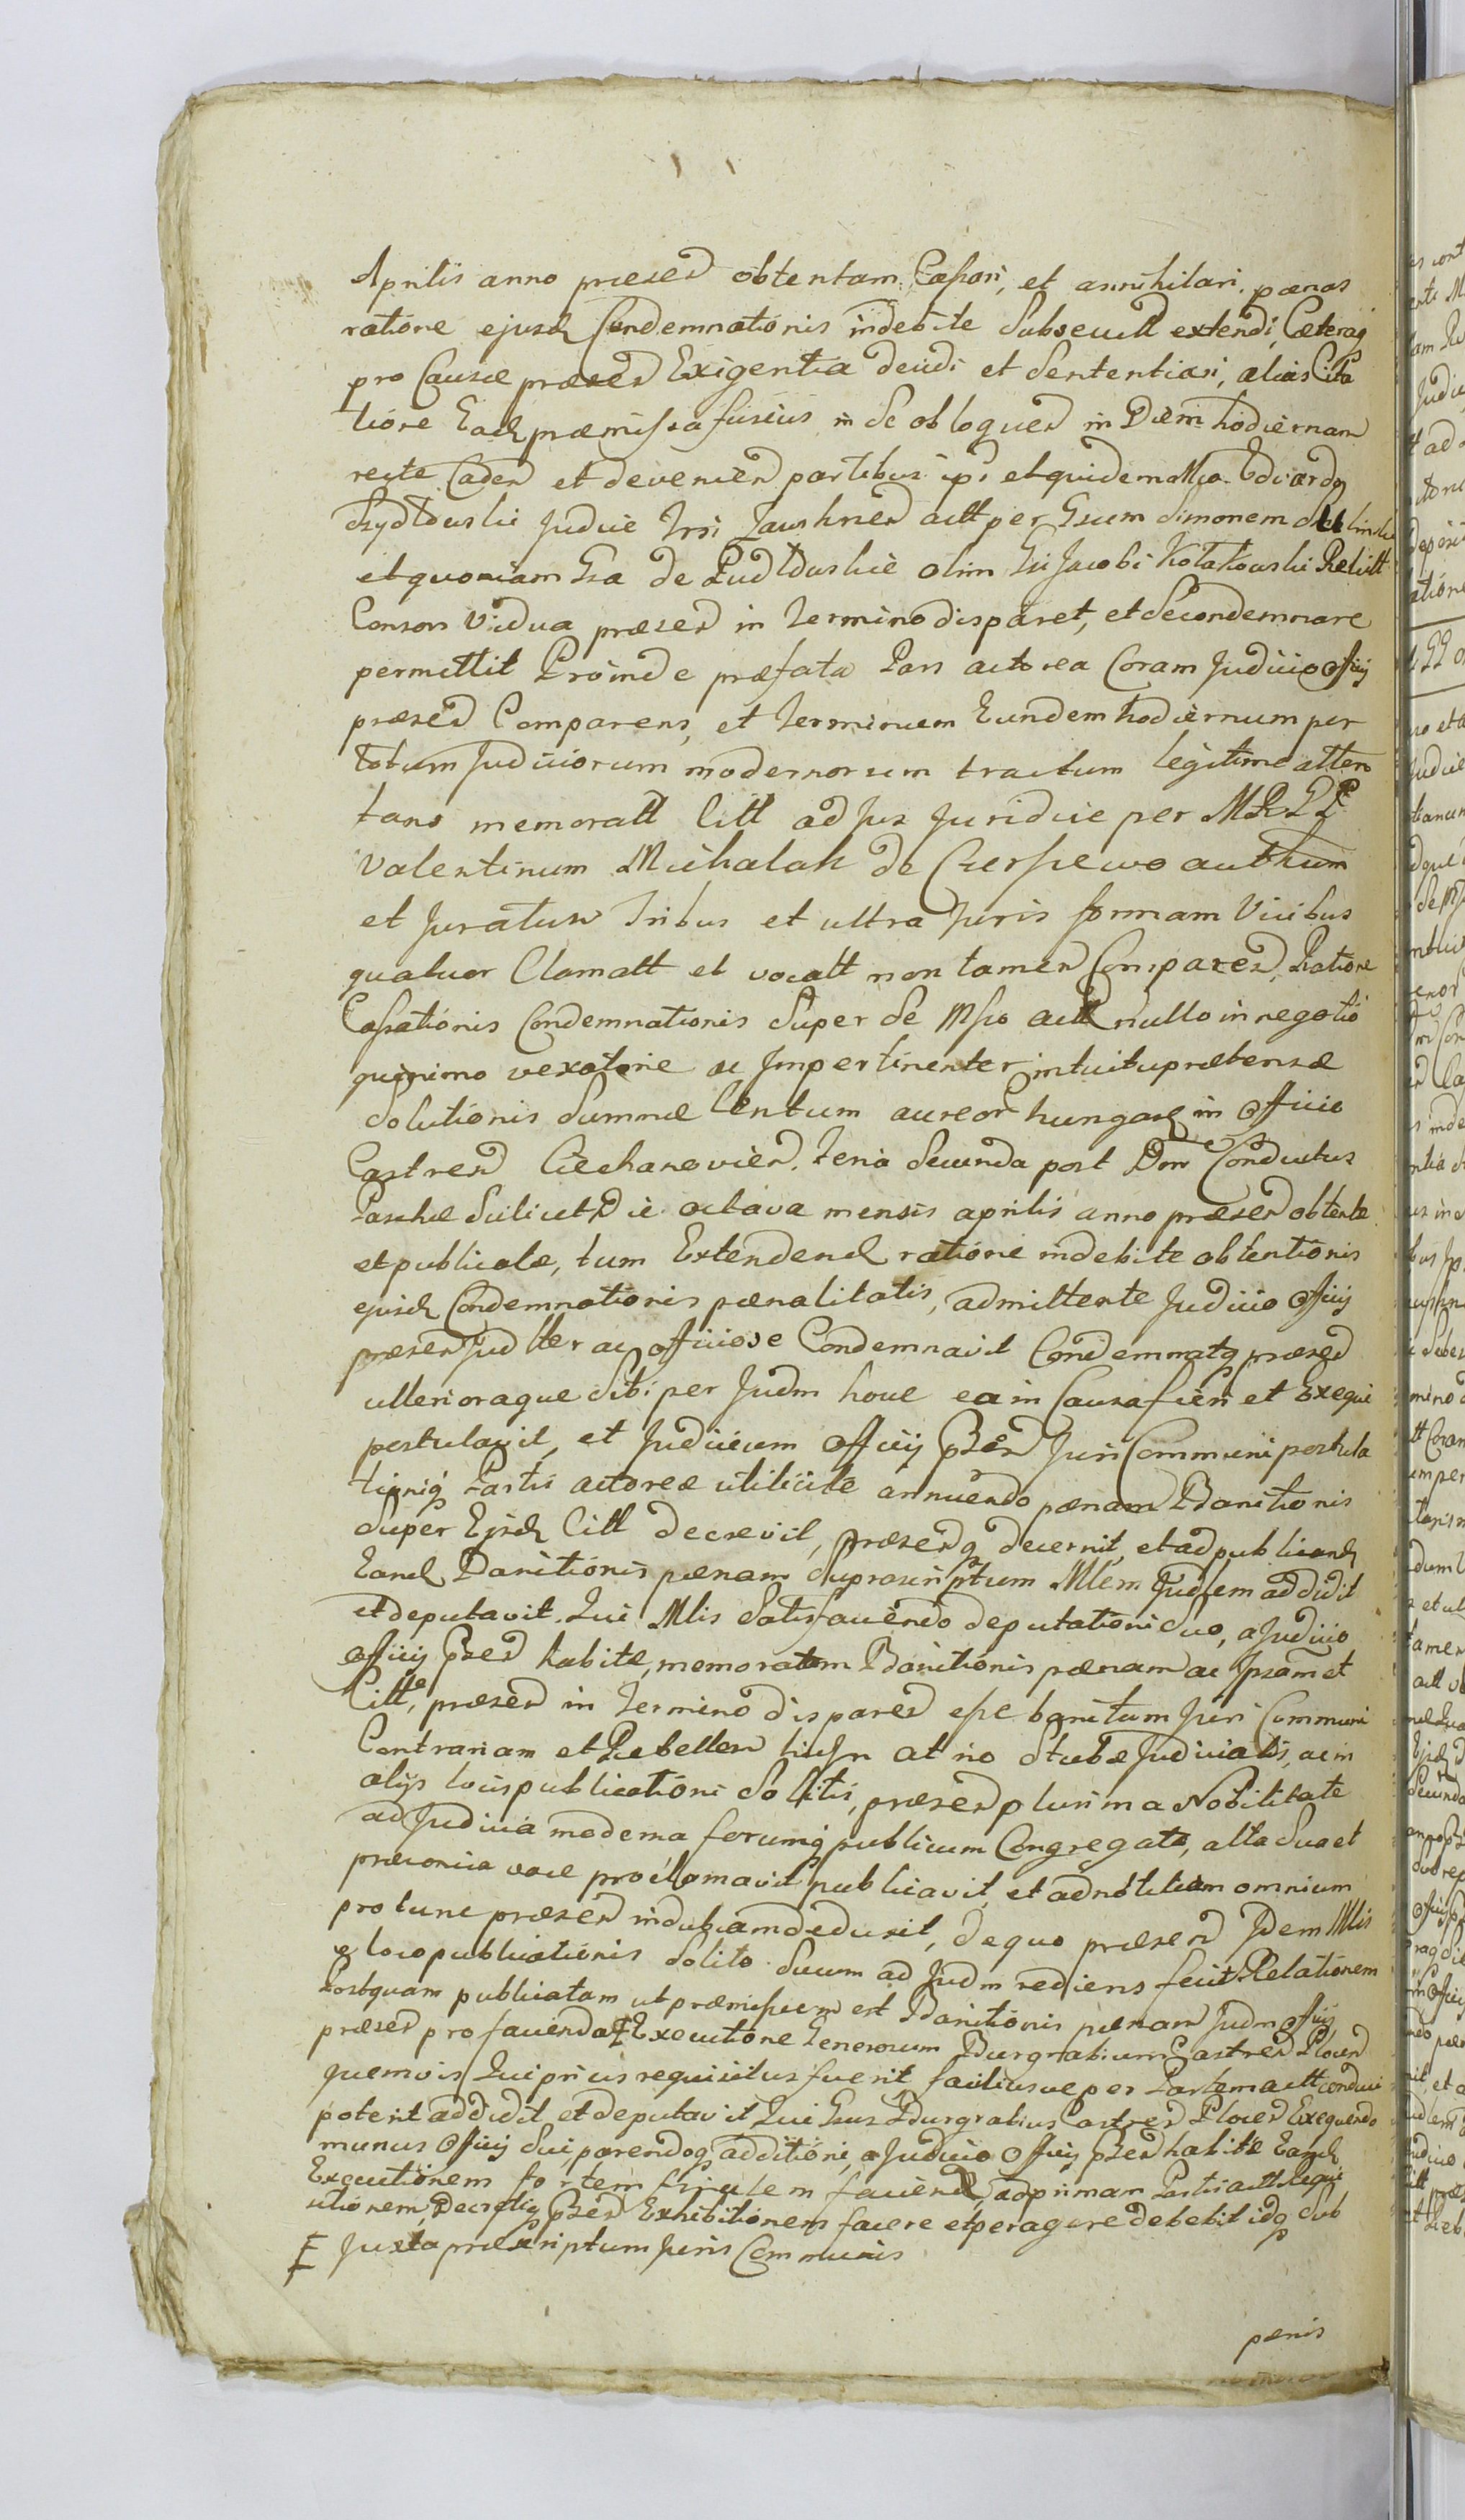 Aprilis anno præsen obtentam Cassari, et annihilari, pænas
ratione ejusd Condemnationis indebite Subsecutt extendi, Cæteraq
pro Causæ præsen Exigentia decidi et Sententiari, alias Cita
tione Ead præmissa fusius in Se obloquen in Diem hodiernam
recte Caden et devenien partibus ipi et quidem Mco Eduardo
Szydłowski Judice Trri Zawskrien actt per Gsum Simonem
et quoniam Gsa de Pudłdowskie olim Gsi Jacobi Kołakowski Relictt
Consors Vidua præsen in Termino disparet, et Se condemnare
permittit Proinde præfata Pars actorea Coram Judicio Officij
præsen Comparens, et Terminum Eundem hodiernum per
totum Judiciorum modernorum tractum legitime atten
tans memoratt Citt ad Jus Juridice per MRGG
Valentinum Michalak de Czerniewo authum
et Juratum Tribus et ultra Juris formam Vicibus
quatuor Clamatt et vocatt non tamen Comparen, Ratione
Cassationis Condemnationis Super Se Msco actt nullo in negotio
quinimo vexatorie ac Impertinenter intuitu prætensæ
Solutionis Summæ Centum aureor hungar in Officio
Castren Ciechanovien. Feria Secunda post Dom Conductus
Paschæ Scilicet Die octava mensis aprilis anno præsen obtentæ
et publicatæ, tum Extendend ratione indebite obtentionis
ejusd Condemnationis pænalitatis, admittente Judicio Officij
præsen Judtter ac officiose Condemnavit Condemnatq præsen
ulterioraque Sibi per Judm hocce ea in Causa fieri et Exequi
postulavit, et Judicium Officij Psen Juri Communi postula
tioniq Partis actoreæ utilicite annuendo pænam Banitionis
Super Ejusd Citt decrevit, præsenq decernit, et ad publicand
Eand Banitionis pænam Suprascriptum Mlem Judlem addidit
et deputavit. Qui Mlis Satisfaciendo deputationi Suo, a Judicio
Officij Psen habitæ, memoratam Banitionis pænam ac Ipsam et
Citt, præsen in Termino disparen esse banitam Juri Communi
Contrariam et Rebellem in Stubæ Judicialis, ac in
alijs locis publicationi Solitis, præsen plurima Nobilitate
ad Judicia moderna forumq publicum Congregata, alta Sua et
præconia voce proclamavit publicavit, et ad notitiam omnium
pro tunc præsen indubiam deduxit, de quo præsen Idem Mlis
e loco publicationis Solito Suum ad Judm rediens fecit Relationem
Postquam publicatam ut præmissum est Banitionis pænam Judm Officij
præsen pro facienda Ŧ Executione Generosum Burgrabium Castren Plocen
quemvis Qui prius requisitus fuerit facilius ve per Partem actt conduci
poterit addidit et deputavit Qui Gsus Burgrabius Castren Plocen Exequendo
munus Officij Sui, parendoq additioni, a Judicio Officij Psen habitæ Eand
Executionem faciend, ad primam Partis actt requi
sitionem, Decretiq Psen Exhibitionem facere et peragere debebit idq Sub
Ŧ Juxta præscriptum Juris Communis
pænis